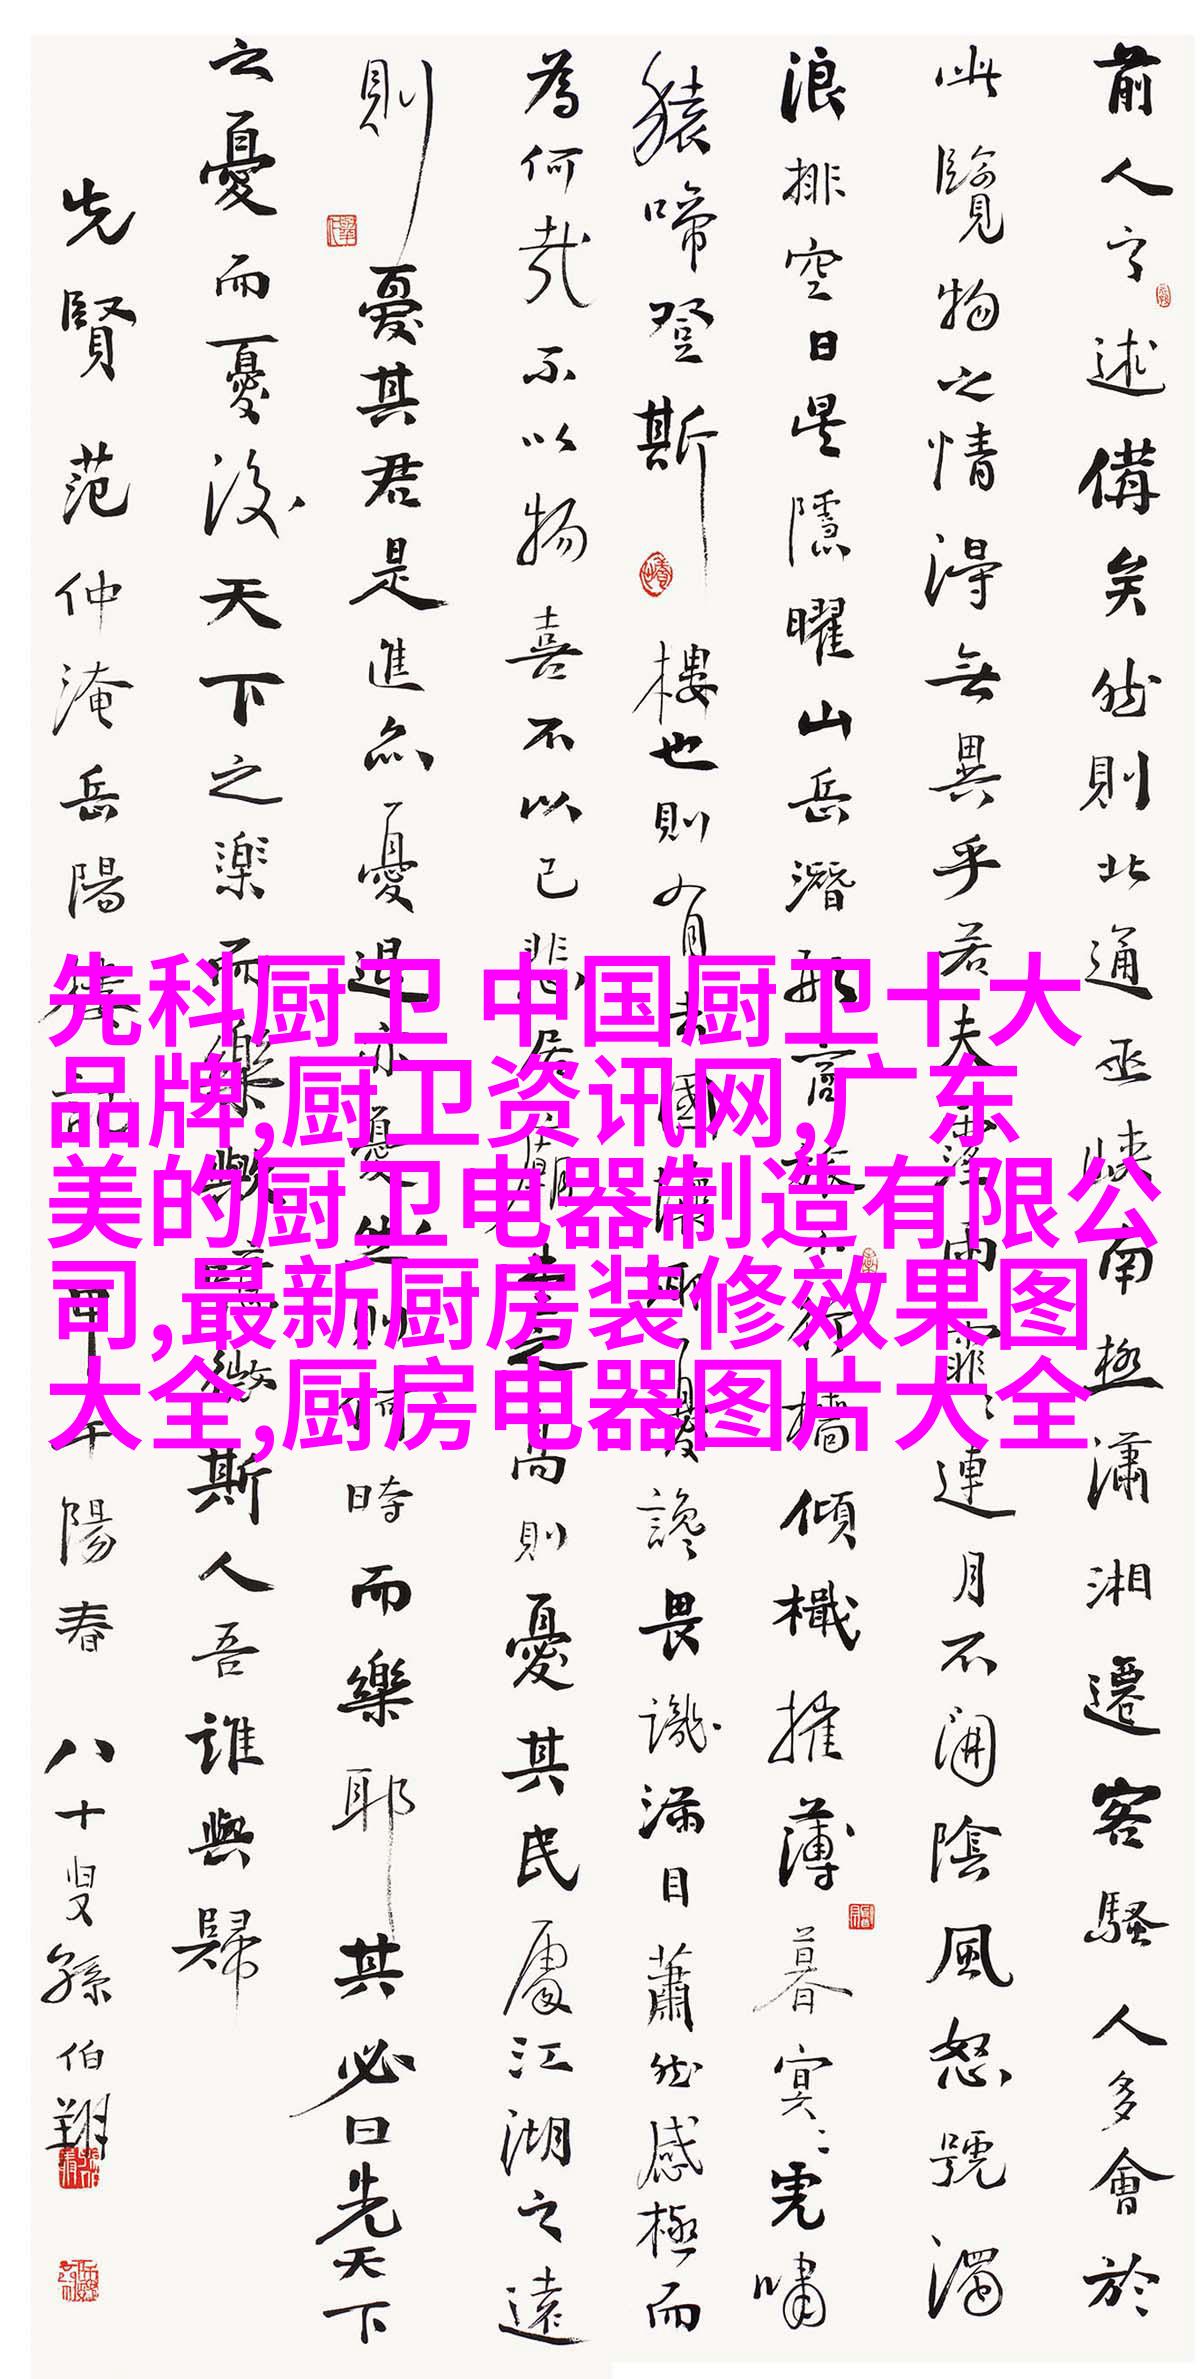 先科厨卫 中国厨卫十大
品牌,厨卫资讯网,广东
美的厨卫电器制造有限公
司,最新厨房装修效果图
大全,厨房电器图片大全
前人之述備矣然則北通巫峽南極瀟湘遷客騷人多會於
此覽物之情得無異乎若夫淫雨霏〻連月不開陰風怒號濁
浪排空日星隱曜山岳潛形商旅不行檣傾檝摧薄暮冥〻虎嘯
猿啼登斯樓也則有去國懷鄉憂讒畏譏滿目蕭然感極而
為何哉不以物喜不以己悲居廟堂之高則憂其民處江湖之遠
則憂其君是進亦憂退亦憂然則何時而樂耶其必曰先天下
之憂而憂後天下之樂而樂歟噫微斯人吾誰與歸
先賢范仲淹岳陽樓記甲午陽春 八十叟孫伯翔